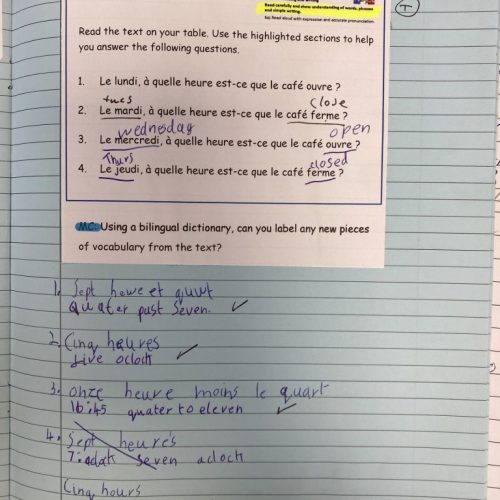 Read carefully and show understanding of words, phrases
and simple writing.
Read aloud with expression and accurate pronunciation.
T
Read the text on your table. Use the highlighted sections to help
you answer the following questions.
1. Le lundi, à quelle heure est-ce que le café ouvre ?
tues close
2. Le mardi, à quelle heure est-ce que le café ferme ?
wednesday open
3. Le mercredi, à quelle heure est-ce que le café ouvre ?
Thurs closed
4. Le jeudi, à quelle heure est-ce que le café ferme ?
MC: Using a bilingual dictionary, can you label any new pieces
of vocabulary from the text?
1. Sept heure et quart
Quater past Seven.
2. Cinq heures
five oclock
3. onze heure moins le quart
10:45 quater to eleven
4. Sept heures
7: seven aclock
Cinq hours